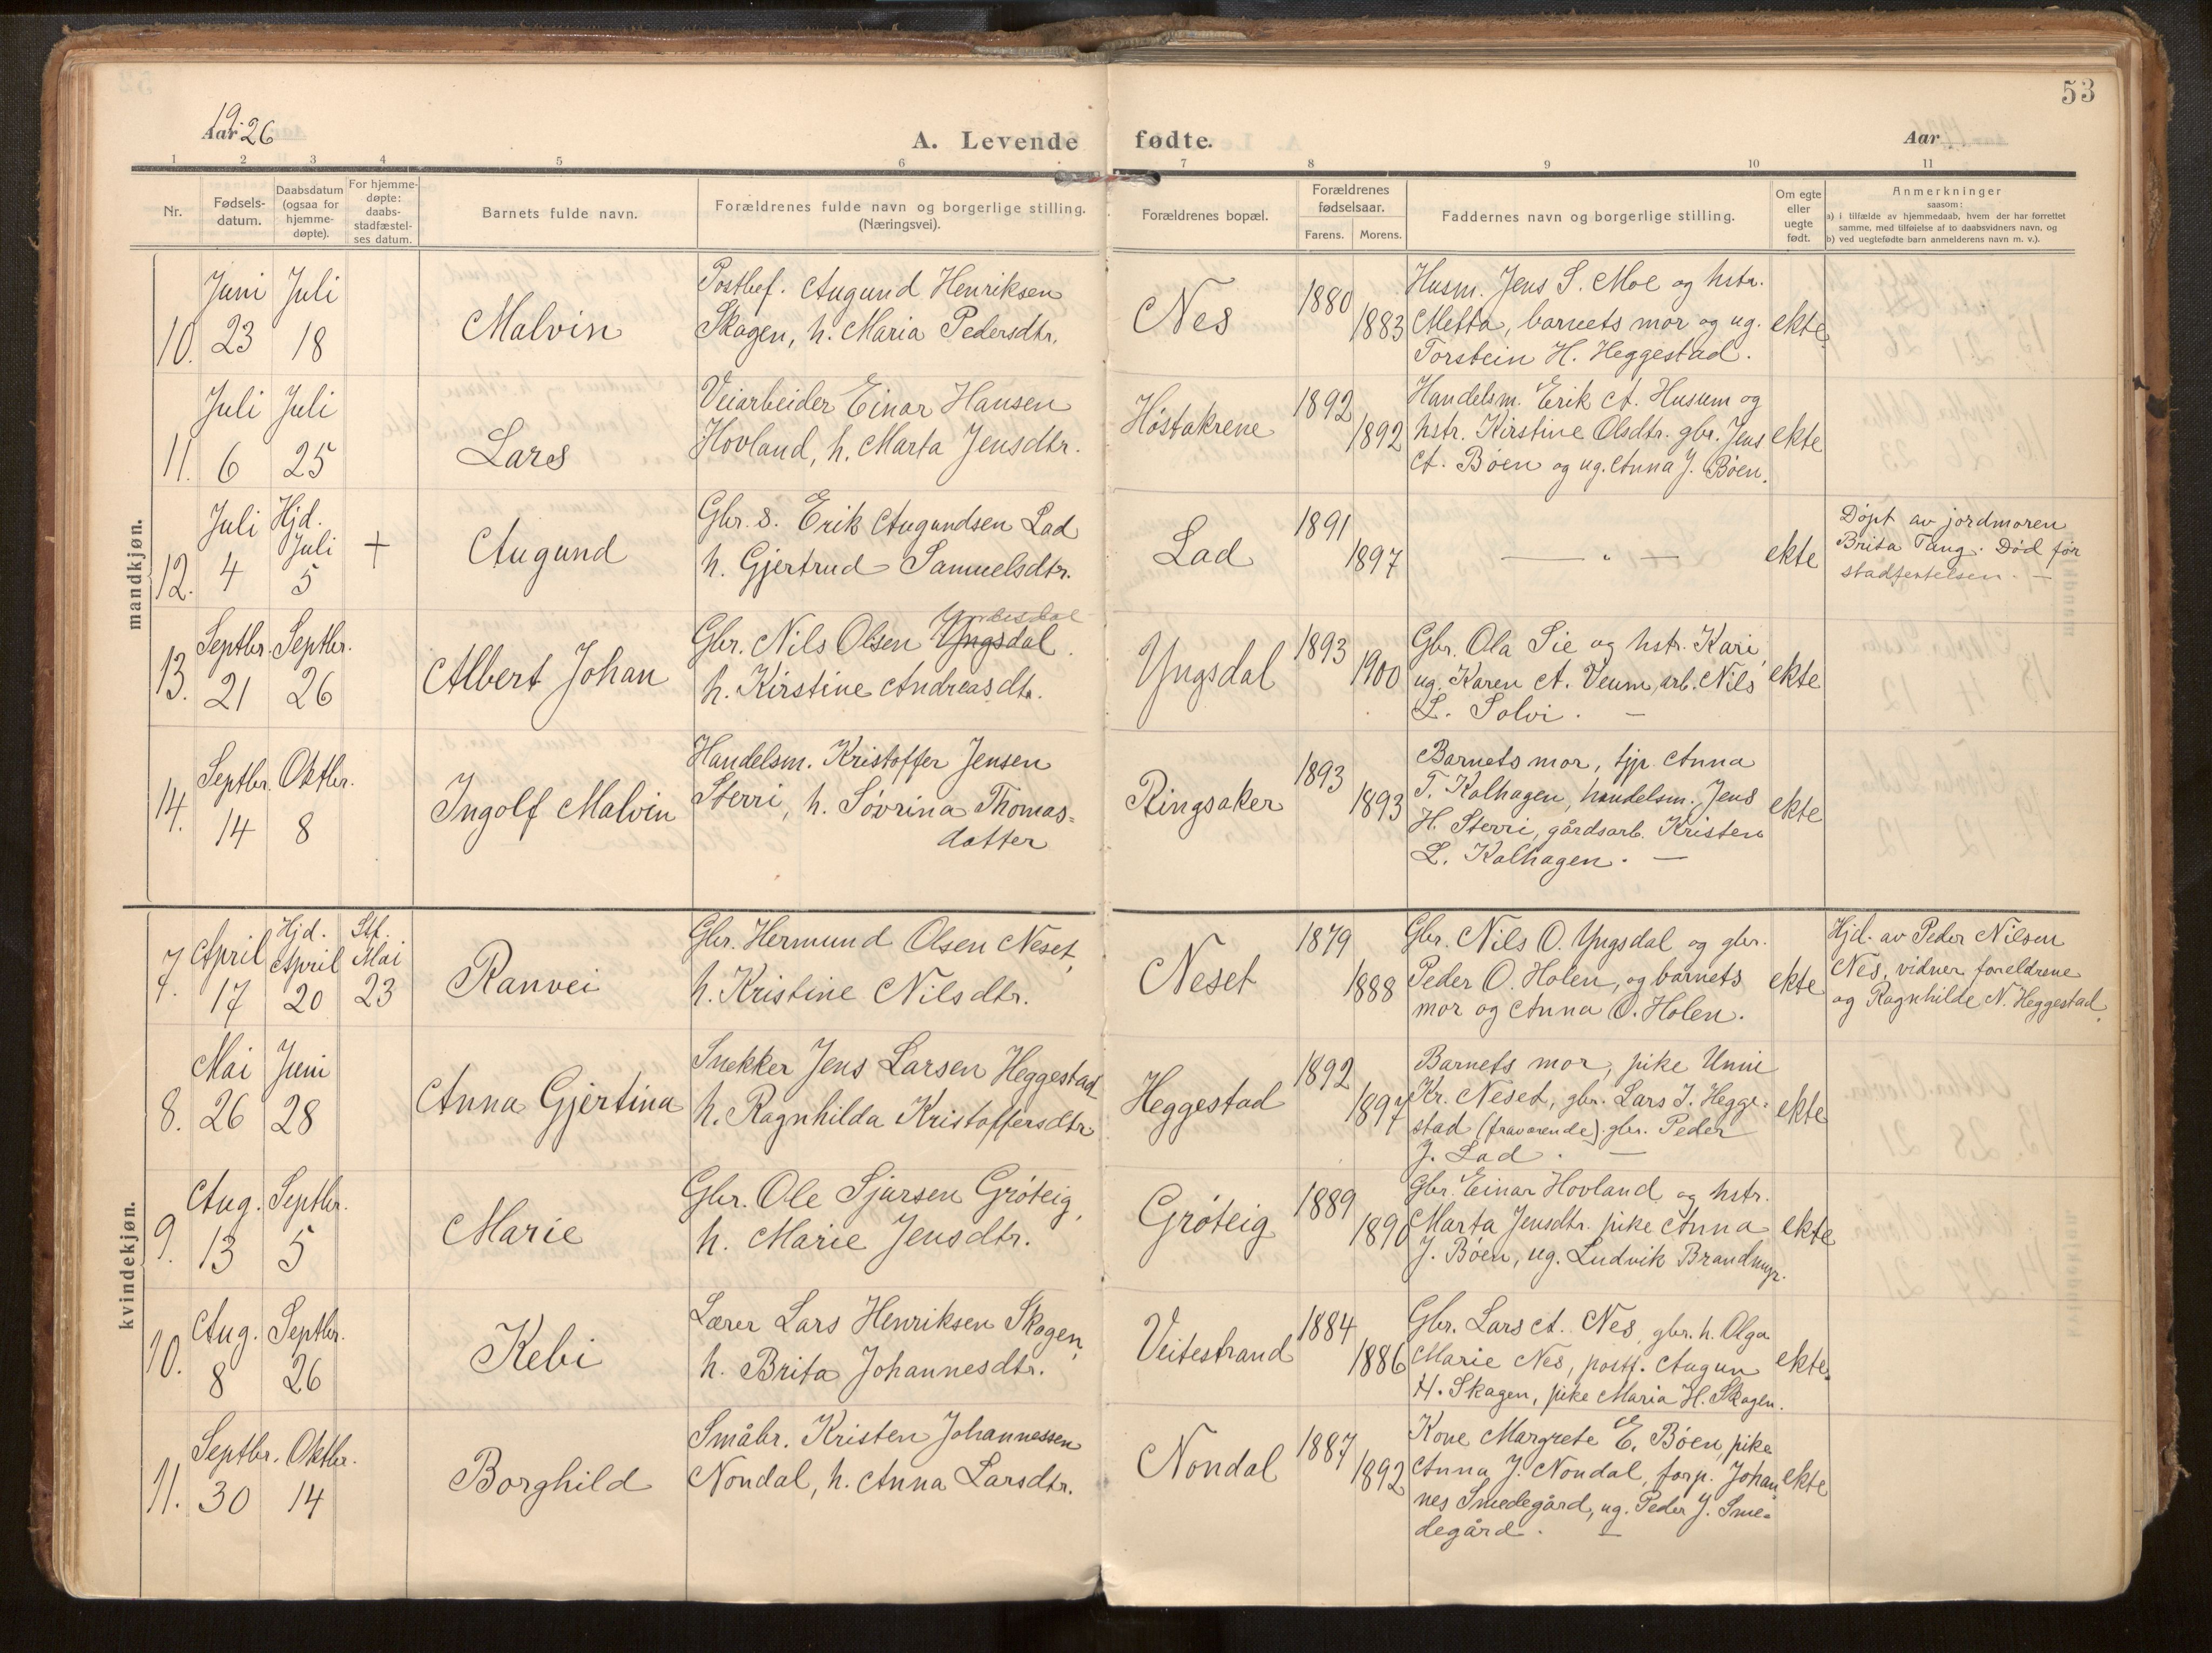 53
Aar 1926
A. Levende fødte.
Aar
1 2 3 4 5 6 7 8 9 10 11
Nr.
Fødsels-
datum.
Daabsdatum
(ogsaa for
hjemme-
døpte).
For hjemme-
døpte:
daabs-
stadfæstel-
ses datum.
Barnets fulde navn.
Forældrenes fulde navn og borgerlige stilling.
(Næringsvei).
Forældrenes bopæl.
Forældrenes
fødselsaar.
Farens. Morens.
Faddernes navn og borgerlige stilling.
Om egte
eller
uegte
født.
Anmerkninger
saasom:
a) i tilfælde av hjemmedaab, hvem der har forrettet
samme, med tilføielse af to daabsvidners navn, og
b) ved uegtefødte barn anmelderens navn m. v.).
mandkjøn.
10.
Juni
23
Juli
18
Malvin
Postbef. Augund Henriksen
Skagen, h. Maria Pedersdtr.
Nes
1880
1883
Husm. Jens S. Moe og hstr.
Metta, barnets mor og ug.
Torstein H. Heggestad.
ekte.
11.
Juli
6
Juli
25
Lars
Veiarbeider Einar Hansen
Hovland, h. Marta Jensdtr.
Høstakrene
1892
1892
Handelsm. Erik A. Husum og
hstr. Kirstine Olsdtr. gbr. Jens
A. Bøen og ug. Anna J. Bøen.
ekte
12.
Juli
4
Hjd.
Juli
5
+
Augund
Gbr. s. Erik Augundsen Lad
h. Gjertrud Samuelsdtr.
Lad
1891
1897
— " —
ekte
Døpt av jordmoren
Brita Tang. Død før
stadfestelsen. —
13.
Septbr.
21
Septbr.
26
Albert Johan
Gbr. Nils Olsen Yngsdal.
h. Kirstine Andreasdtr.
Yngsdal
1893
1900
Gbr. Ola Sie og hstr. Kari,
ug. Karen A. Veum, arb. Nils
L. Solvi. —
ekte
14.
Septbr.
14
Oktbr.
8
Ingolf Malvin
Handelsm. Kristoffer Jensen
Sterri, h. Søvrina Thomas=
datter
Ringsaker
1893
1893
Barnets mor, tjp. Anna
T. Kalhagen, handelsm. Jens
H. Sterri, gårdsarb. Kristen
L. Kalhagen. —
ekte
kvindekjøn.
7.
April
17
Hjd.
April
20
Stf.
Mai
23
Ranvei
Gbr. Hermund Olsen Neset,
h. Kristine Nilsdtr.
Neset
1879
1888
Gbr. Nils O. Yngsdal og gbr.
Peder O. Holen, og barnets
mor og Anna O. Holen.
ekte
Hjd. av Peder Nilsen
Nes, vidner foreldrene
og Ragnhilde N. Heggestad.
8.
Mai
26
Juni
28
Anna Gjertina
Snekker Jens Larsen Heggestad
h. Ragnhilda Kristoffersdtr
Heggestad
1892
1897
Barnets mor, pike Unni
Kr. Neset, gbr. Lars J. Hegge=
stad (fraværende), gbr. Peder
J. Lad. —
ekte
9.
Aug.
13
Septbr.
5
Marie
Gbr. Ole Sjursen Grøteig,
h. Marie Jensdtr.
Grøteig
1889
1890
Gbr. Einar Hovland og hstr.
Marta Jensdtr. pike Anna
J. Bøen, ug. Ludvik Brandmyr.
ekte
10.
Aug.
8
Septbr.
26
Kebi
Lærer Lars Henriksen Skagen,
h. Brita Johannesdtr.
Veitestrand
1884
1886
Gbr. Lars A. Nes, gbr. h. Olga
Marie Nes, postf. Augun
H. Skagen, pike Maria H. Skagen.
ekte.
11.
Septbr.
30
Oktbr.
14
Borghild
Småbr. Kristen Johannessen
Nondal, h. Anna Larsdtr.
Nondal
1887
1892
Kone Margrete E. Bøen, pike
Anna J. Nondal, forp. Johan
nes Smedegård, ug. Peder J. Sme=
degård. —
ekte